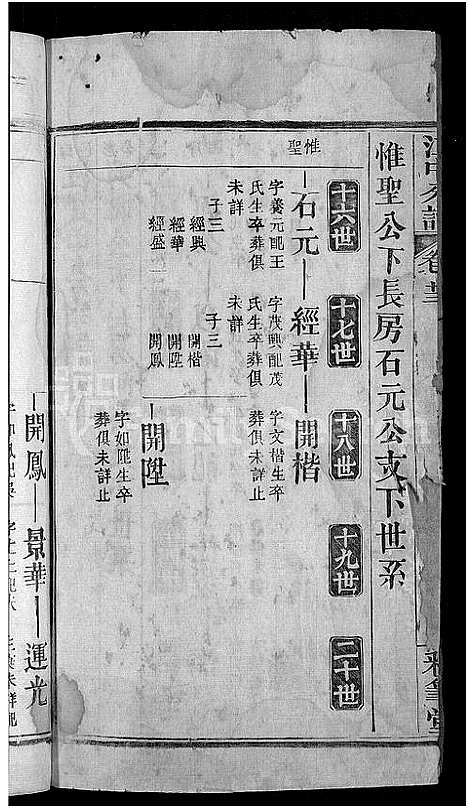 卷十三
惟聖公下長房石元公支下世系
十六世
十七世
十八世
十九世
二十世
惟聖
石元
經華
開楷
字養元配王
氏生卒葬俱
未詳
子三
經興
經華
經盛
字茂興配茂
氏生卒葬俱
未詳
子三
開楷
開陞
開鳳
字文楷生卒
葬俱未詳止
開陞
字如陞生卒
葬俱未詳止
開鳳
景華
運光